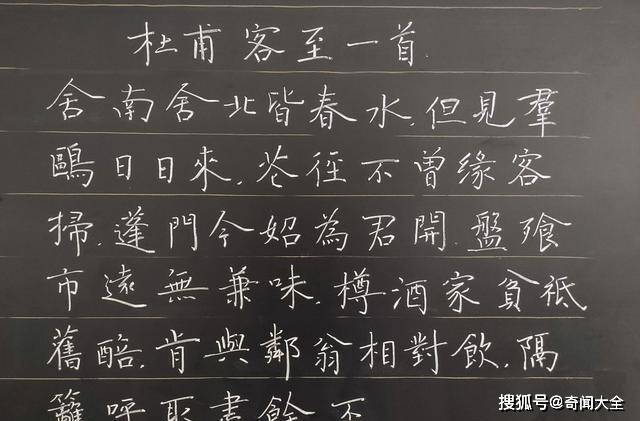 杜甫客至一首.
舍南舍北皆春水.但見羣
鷗日日來.花徑不曾緣客
掃.蓬門今始為君開.盤飱
市遠無兼味.樽酒家貧祗
舊醅.肯與鄰翁相對飲.隔
籬呼取盡餘不
搜狐号@奇闻大全